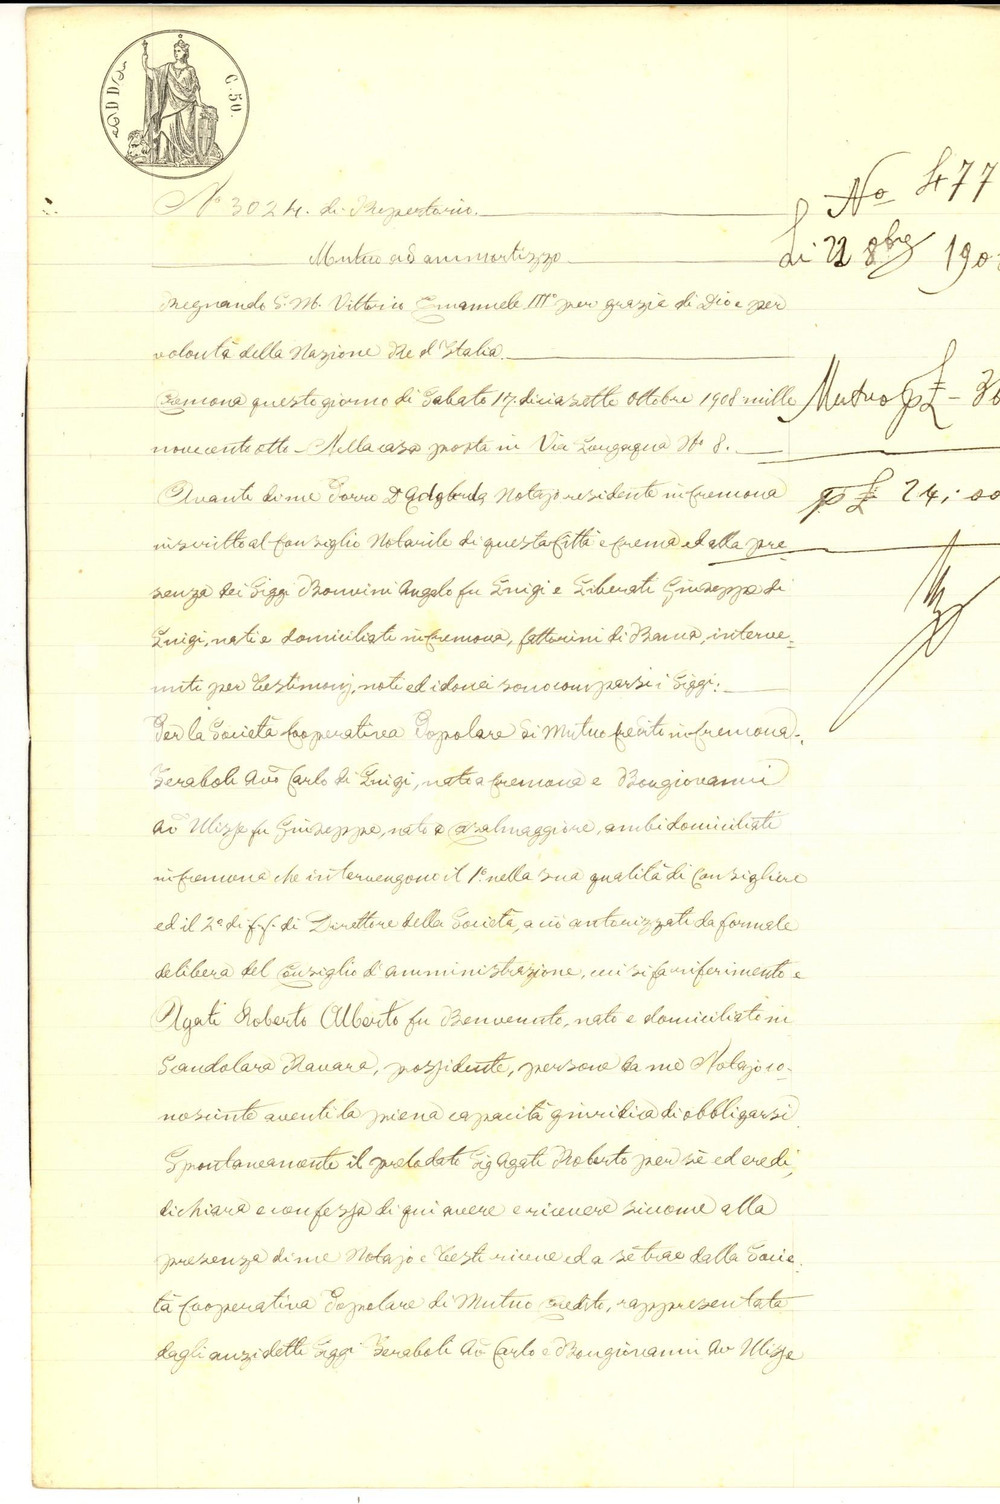 C. 50.
No 477
N° 3024. di Repertorio.
li 22 8bre 190
Mutuo ad ammortizzo
Regnando S. M. Vittorio Emanuele III° per grazia di Dio e per
volontà della Nazione Re d'Italia.
Cremona questo giorno di Sabato 17. diciasette Ottobre 1908 mille
Mutuo p £ - 30
novecentotto - Nella casa posta in Via Longaqua N° 8.
Avanti di me Torre Dr Notajo residente in Cremona
p £ 24,.00
inscritto al Consiglio Notarile di questa Città e Crema ed alla pre
senza dei Sigg. Bonvini Angelo fu Luigi e Liberati Giuseppe di
Luigi, nati e domiciliati in Cremona, fattorini di Banca, interve=
nuti per testimonj, noti ed idonei sono comparsi i Sigg:
Per la Società Cooperativa Popolare di Mutuo Credito in Cremona.
Feraboli Avv Carlo di Luigi, nato a Cremona e Bongiovanni
Av Ulisse fu Giuseppe, nato a Casalmaggiore, ambi domiciliati
in Cremona che intervengono il 1° nella sua qualità di Consigliere
ed il 2° di f.f. di Direttore della Società, a ciò autorizzati da formale
delibera del Consiglio d'amministrazione, cui si fa riferimento e
Agati Roberto Alberto fu Benvenuto, nato e domiciliato in
Scandolara Ravara, possidente, persone da me Notajo co-
nosciute aventi la piena capacità giuridica di obbligarsi.
Spontaneamente il prelodato Sig Agati Roberto per sè ed eredi,
dichiara e confessa di qui avere e ricevere siccome alla
presenza di me Notajo e testi riceve ed a sè trae dalla Socie=
tà Cooperativa Popolare di Mutuo Credito, rappresentata
dagli anzidetti Sigg. Feraboli Av Carlo e Bongiovanni Av Ulisse